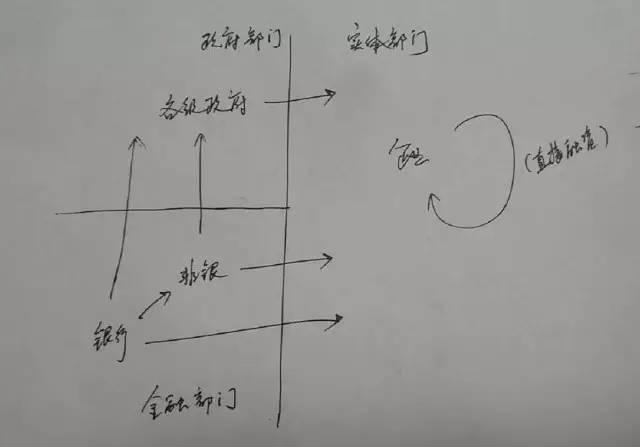 政府部门
实体部门
各级政府
企业
(直接融资)
非银
银行
金融部门